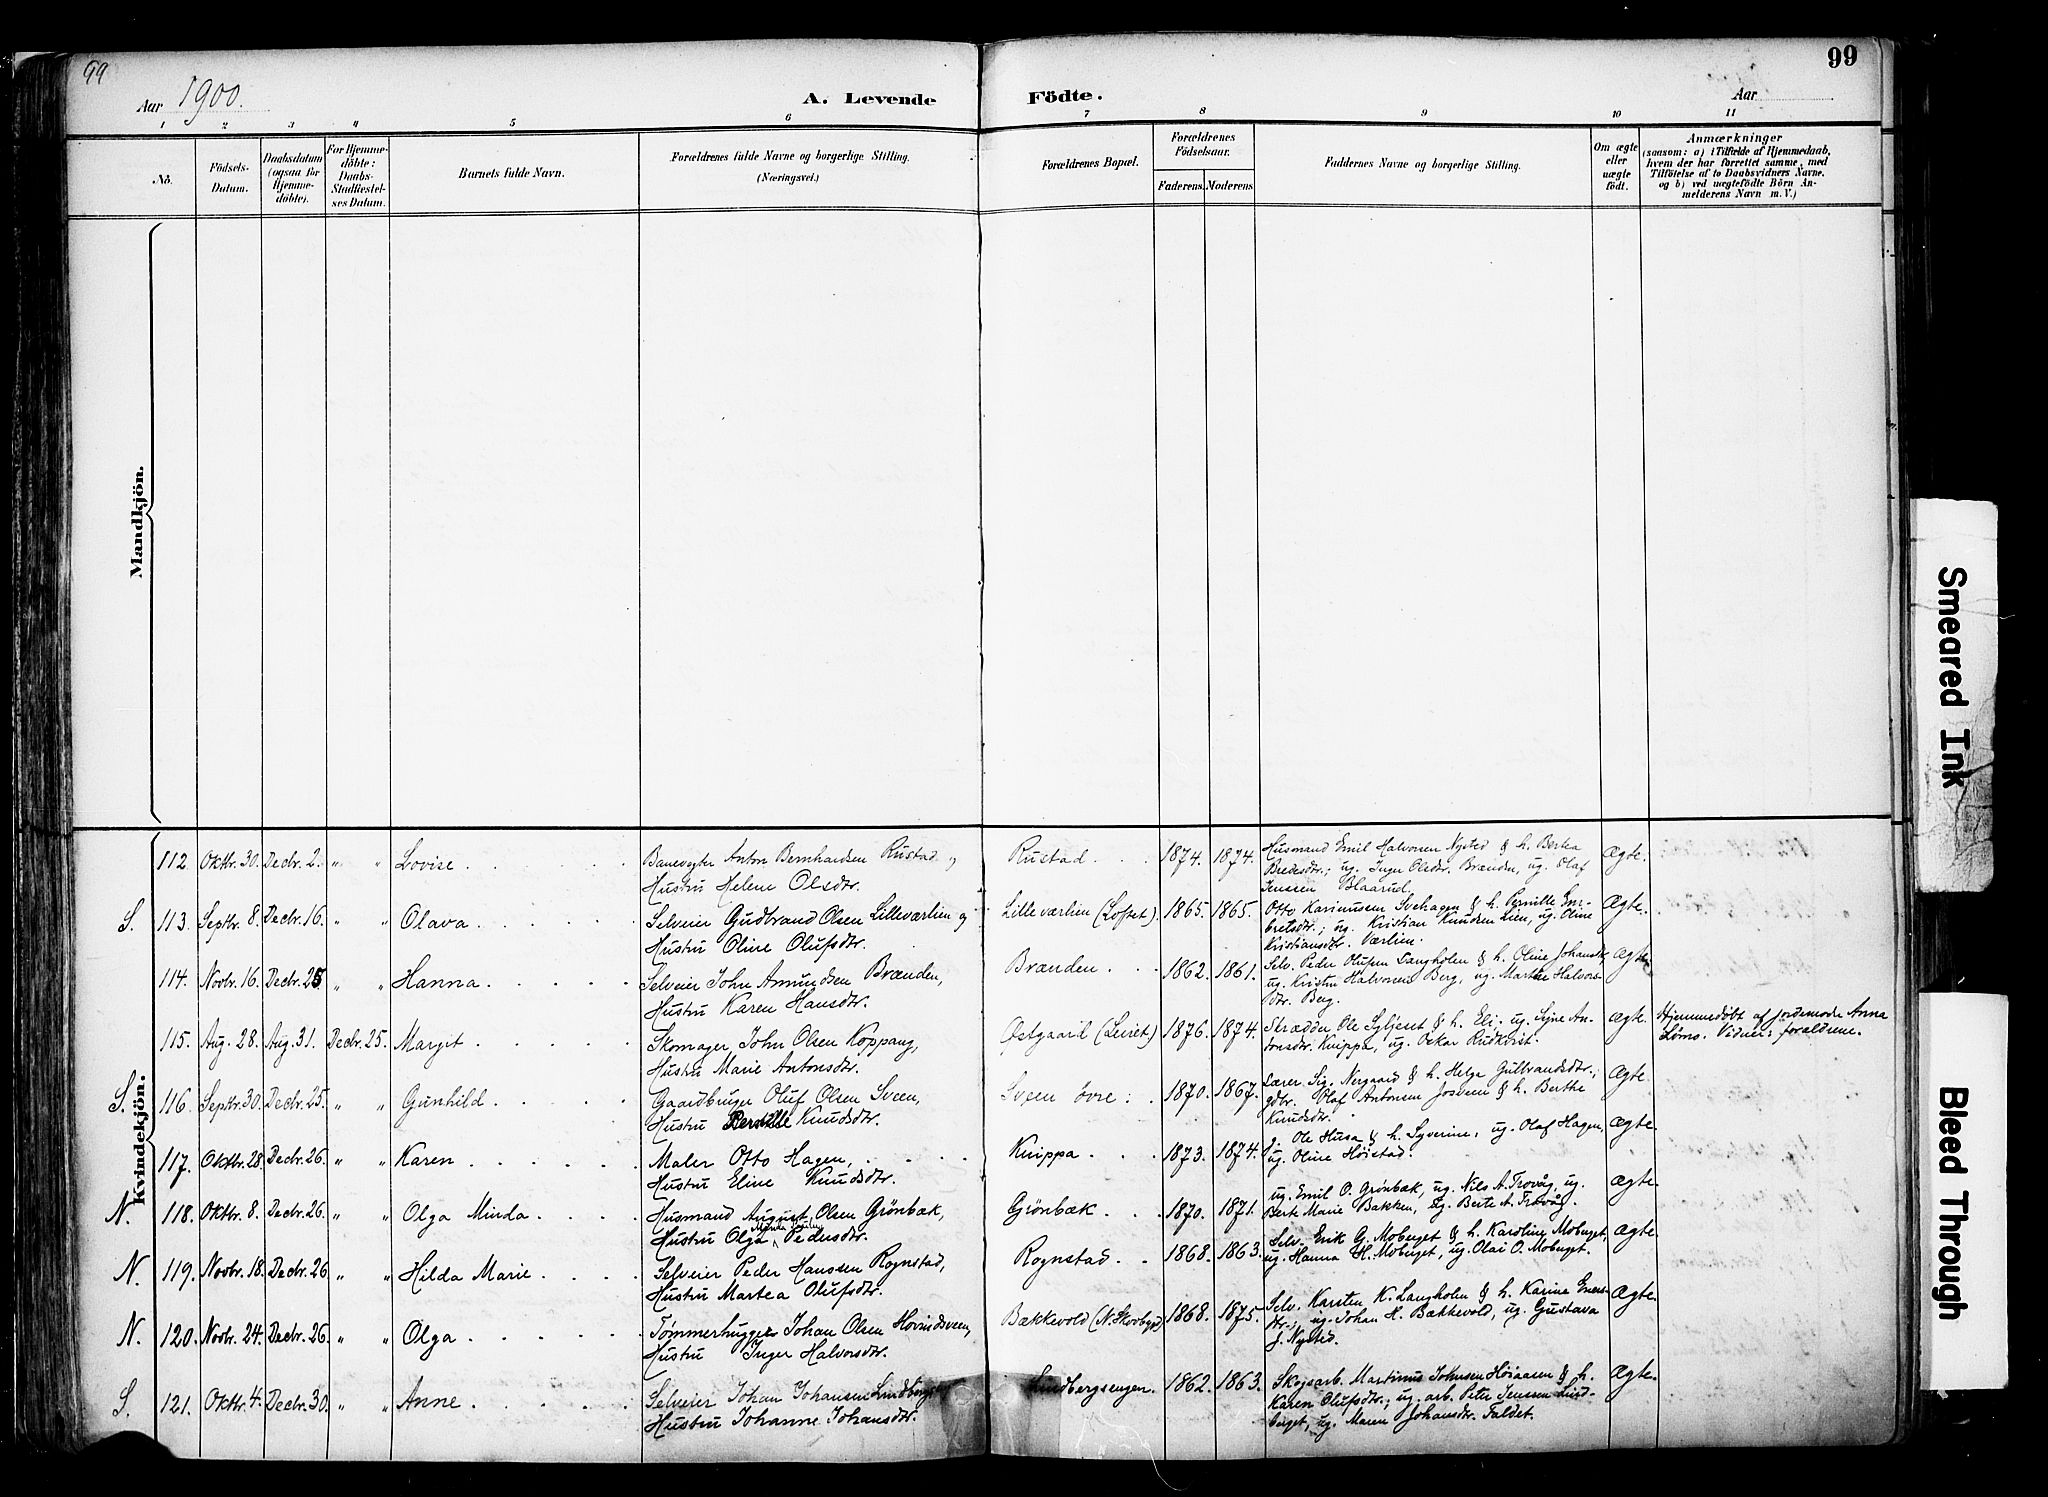 99
99
Aar 1900.
A. Levende Födte.
Aar
1 2 3 4 5 6 7 8 9 10 11
No.
Födsels-Datum.
Daabsdatum (ogsaa for Hjemme-døbte).
For Hjemme-døbte: Daabs-Stadfæstel-ses Datum.
Barnets fulde Navn.
Forældrenes fulde Navne og borgerlige Stilling.
(Næringsvei.)
Forældrenes Bopæl.
Forældrenes Födselsaar.
Faderens. Moderens.
Faddernes Navne og borgerlige Stilling.
Om ægte eller uægte født.
Anmærkninger
(saasom: a) i Tilfælde af Hjemmedaab,
hvem der har forrettet samme, med
Tilföielse af to Daabsvidners Navne,
og b) ved uægtefödte Börn An-
melderens Navn m. V.)
Mandkjön.
Kvindekjön.
112. Oktbr. 30. Decbr. 2. " " Lovise. Banevogter Anton Bernhardsen Rustad og
Hustru Helene Olsdtr.
Rustad 1874. 1874. Husmand Emil Halvorsen Nysted & h. Berthea
Bredesdtr.; ug. Inger Olsdtr. Brænden, ug. Olaf
Jenssen Blaarud.
Ægte.
S. 113. Septbr. 8. Decbr. 16. " " Olava. Selveier Gudbrand Olsen Lilleværlien og
Hustru Oline Olufsdtr.
Lilleværlien (Loftet). 1865. 1865. Otto Karinusen Svehagen & h. Pernille Em-
bretsdtr.; ug. Kristian Knudsen Lien, ug. Oline
Kristiansdtr. Værlien.
Ægte.
114. Novbr. 16. Decbr. 25. " " Hanna. Selveier John Amundsen Brænden,
Hustru Karen Hansdtr.
Brænden 1862. 1861. Selv. Peder Olufsen Langholen & h. Oline Johansdtr,
ug. Kristen Halvorsen Berg, ug. Marthe Halvors-
dtr. Berg.
Ægte.
115. Aug. 28. Aug. 31. Decbr. 25. Margit Skomager John Olsen Koppang,
Hustru Marie Antonsdtr.
Østgaard (Leiret). 1876. 1874. Skrædder Ole Syljeset & h. Eli; ug. Signe An-
tonsdtr. Kuippa, ug. Oskar Rudkvist.
Ægte. Hjemmedøbt af jordemoder Anna
Løms. Vidner: forældrene.
S. 116. Septbr. 30. Decbr. 25. " " Gunhild Gaardbruger Oluf Olsen Sveen,
Hustru Pernille Knudsdtr.
Sveen øvre 1870. 1867. Lærer Sig. Nergaard & h. Helga Gulbrandsdtr.;
gdbr. Olaf Antonsen Josveen & h. Berthe
Knudsdtr.
Ægte.
117. Oktbr. 28. Decbr. 26. " " Karen Maler Otto Hagen,
Hustru Eline Knudsdtr.
Kuippa 1873. 1874. Ole Husa & h. Syverine, ug. Olaf Hagen,
ug. Oline Høistad.
Ægte.
N. 118. Oktbr. 8. Decbr. 26. " " Olga Minda Husmand August Olsen Grönbæk,
Hustru Olga Pedersdtr.
Grönbæk 1870. 1871. ug. Emil O. Grønbæk, ug. Nils A. Trovåg, ug.
Berte Marie Bakken, ug. Berte A. Trovåg.
Ægte.
N. 119. Novbr. 18. Decbr. 26 " " Hilda Marie Selveier Peder Hanssen Rognstad,
Hustru Martea Olufsdtr.
Rognstad 1868. 1863. Selv. Erik G. Moberget & h. Karoline Moberget,
ug. Hanna H. Moberget, ug. Olai O. Moberget.
Ægte.
N. 120. Novbr. 24. Decbr. 26. " " Olga Tömmerhugger Johan Olsen Hovindsveen,
Hustru Inger Halvorsdtr.
Bækkevold (N. Skovbygd) 1868. 1875. Selv. Karsten K. Langholen & h. Karine Eners-
dtr.; ug. Johan H. Bækkevold, ug. Gustava
J. Nysted.
Ægte.
S. 121. Oktbr. 4. Decbr. 30. " " Anne Selveier Johan Johansen Lindberget
Hustru Johanne Johansdtr.
Lindbergsengen. 1862. 1863. Skogsarb. Martinus Johnsen Höiaasen & h.
Karen Olufsdtr.; ug. arb. Peter Jenssen Lind-
berget, ug. Maren Johansdtr. Faldet.
Ægte.
Smeared Ink
Bleed Through